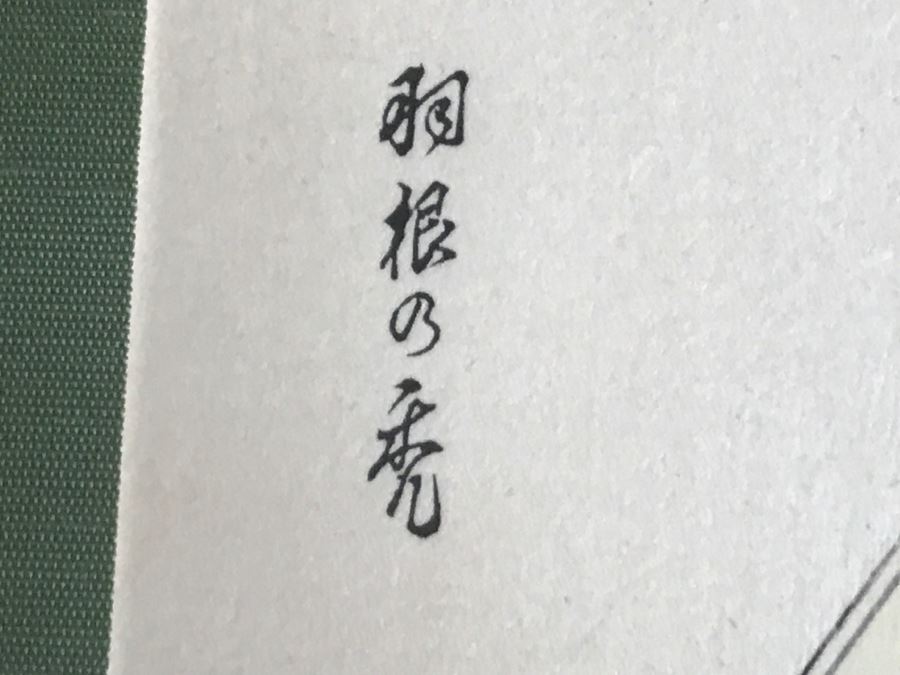 羽根の禿